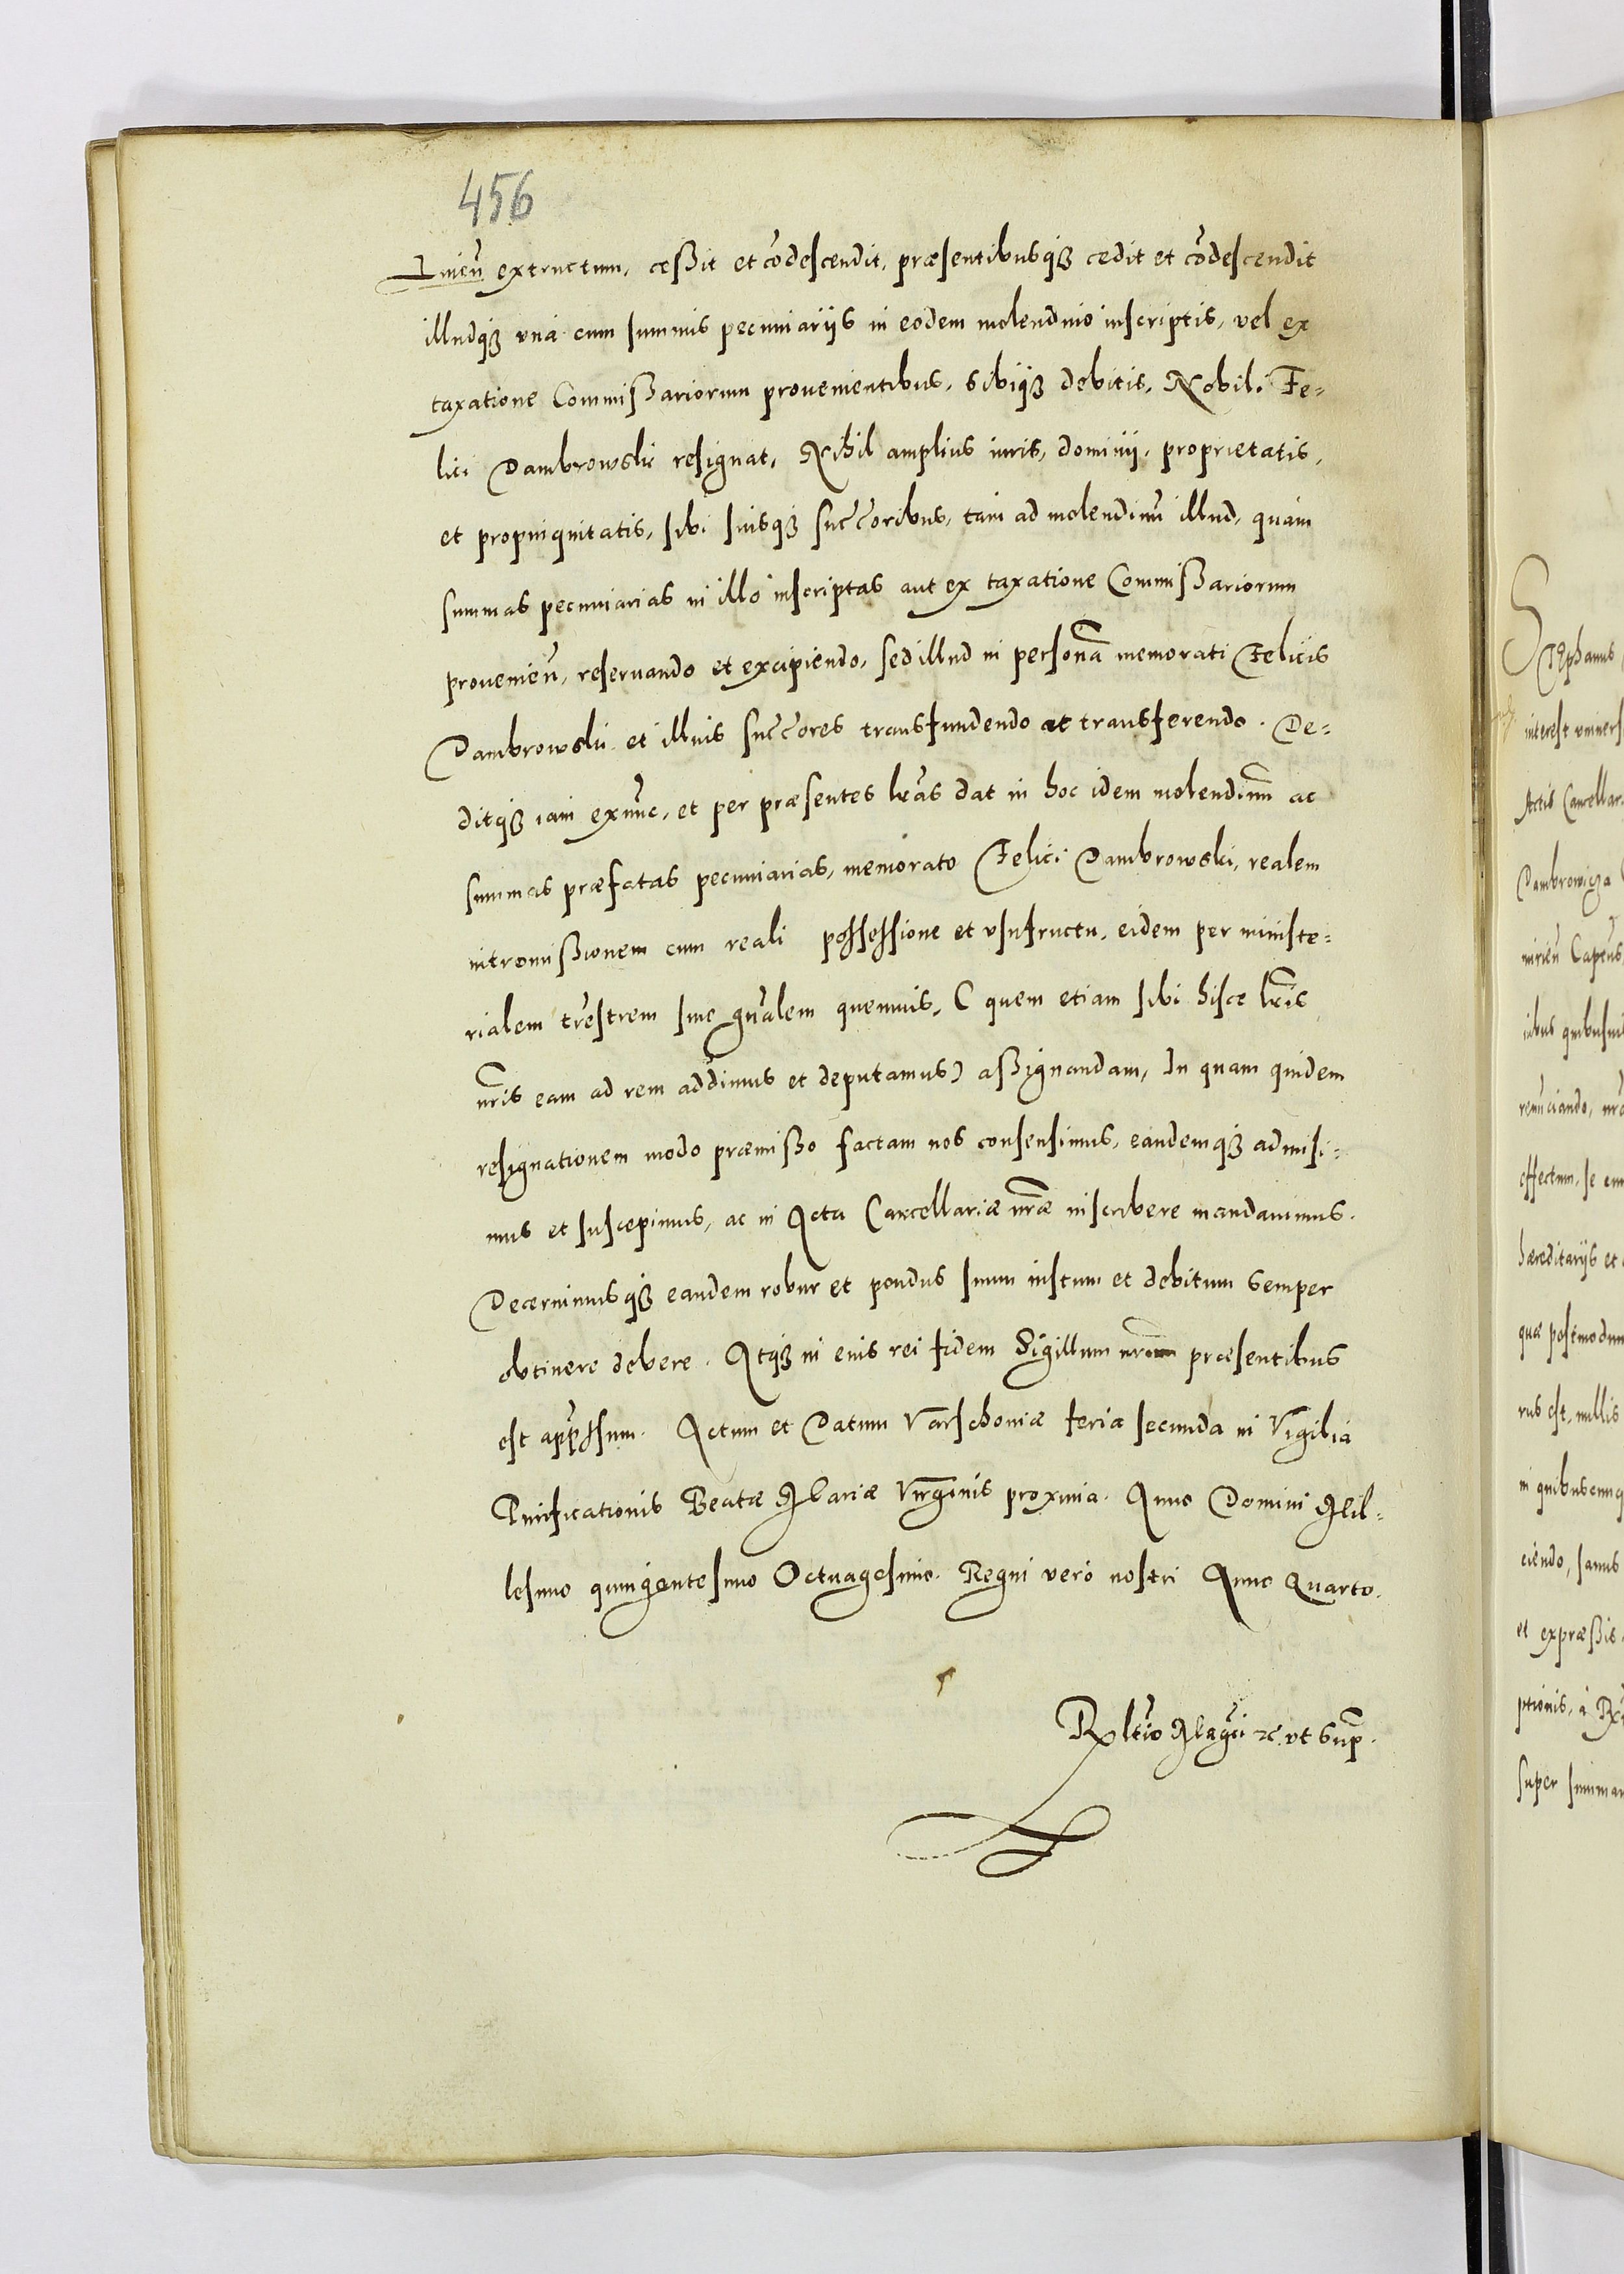 456
Inien̄ extructum, ceßit et cōdescendit, præsentibusq́ꝫ cedit et cōdescendit
illudq́ꝫ vnà cum summis pecuniarijs in eodem molendino inscriptis, vel ex
taxatione Commißariorum prouenientibus, sibiq́ꝫ debitis, Nobil. Fe-
lici Dambrowski resignat, Nihil amplius iuris, dominij, proprietatis,
et propinquitatis, sibi suisq́ꝫ succ̄oribus, tam ad molendinū illud, quàm
summas pecuniarias in illo inscriptas aut ex taxatione Commißariorum
prouenien̄, reseruando et excipiendo, sed illud in personā memorati Felicis
Dambrowski et illius succ̄ores transfundendo at transferendo. De-
ditq́ꝫ iam exnūc, et per præsentes lrās dat in hoc idem molendinū ac
summas præfatas pecuniarias, memorato Felici Dambrowski, realem
intromißionem cum reali possessione et vsufructu, eidem per ministe-
rialem trēstrem siue gnālem quemuis, ( quem etiam sibi hisce lrīs
nr̄is eam ad rem addimus et deputamus) aßignandam, In quam quidem
resignationem modo præmißo factam nos consensimus, eandemq́ꝫ admisi-
mus et suscepimus, ac in Acta Cancellariæ nr̄æ inscribere mandauimus.
Decernimusq́ꝫ eandem robur et pondus suum iustum et debitum semper
obtinere debere. Atq́ꝫ in eius rei fidem Sigillum nr̄um præsentibus
est app̄ssum. Actum et Datum Varschouiæ feria secunda in Vigilia
Purificationis Beatæ Mariæ Virginis proxima. Anno Domini Mil-
lesimo quingentesimo Octuagesimo. Regni verò nostri Anno Quarto.
Rltīo Magcī ꝛc. vt Sup̄.
Stephanus
interest vniuers
Actis Cancellar
Dambrowicza
Captūs
ibus quibusuis
renūciando, nr̄
effectum, se
hæreditarijs et
quæ postmodum
rus est, nullis
in quibuscunq
ciendo, sanus
et expræßis
ptionis, à
super summam